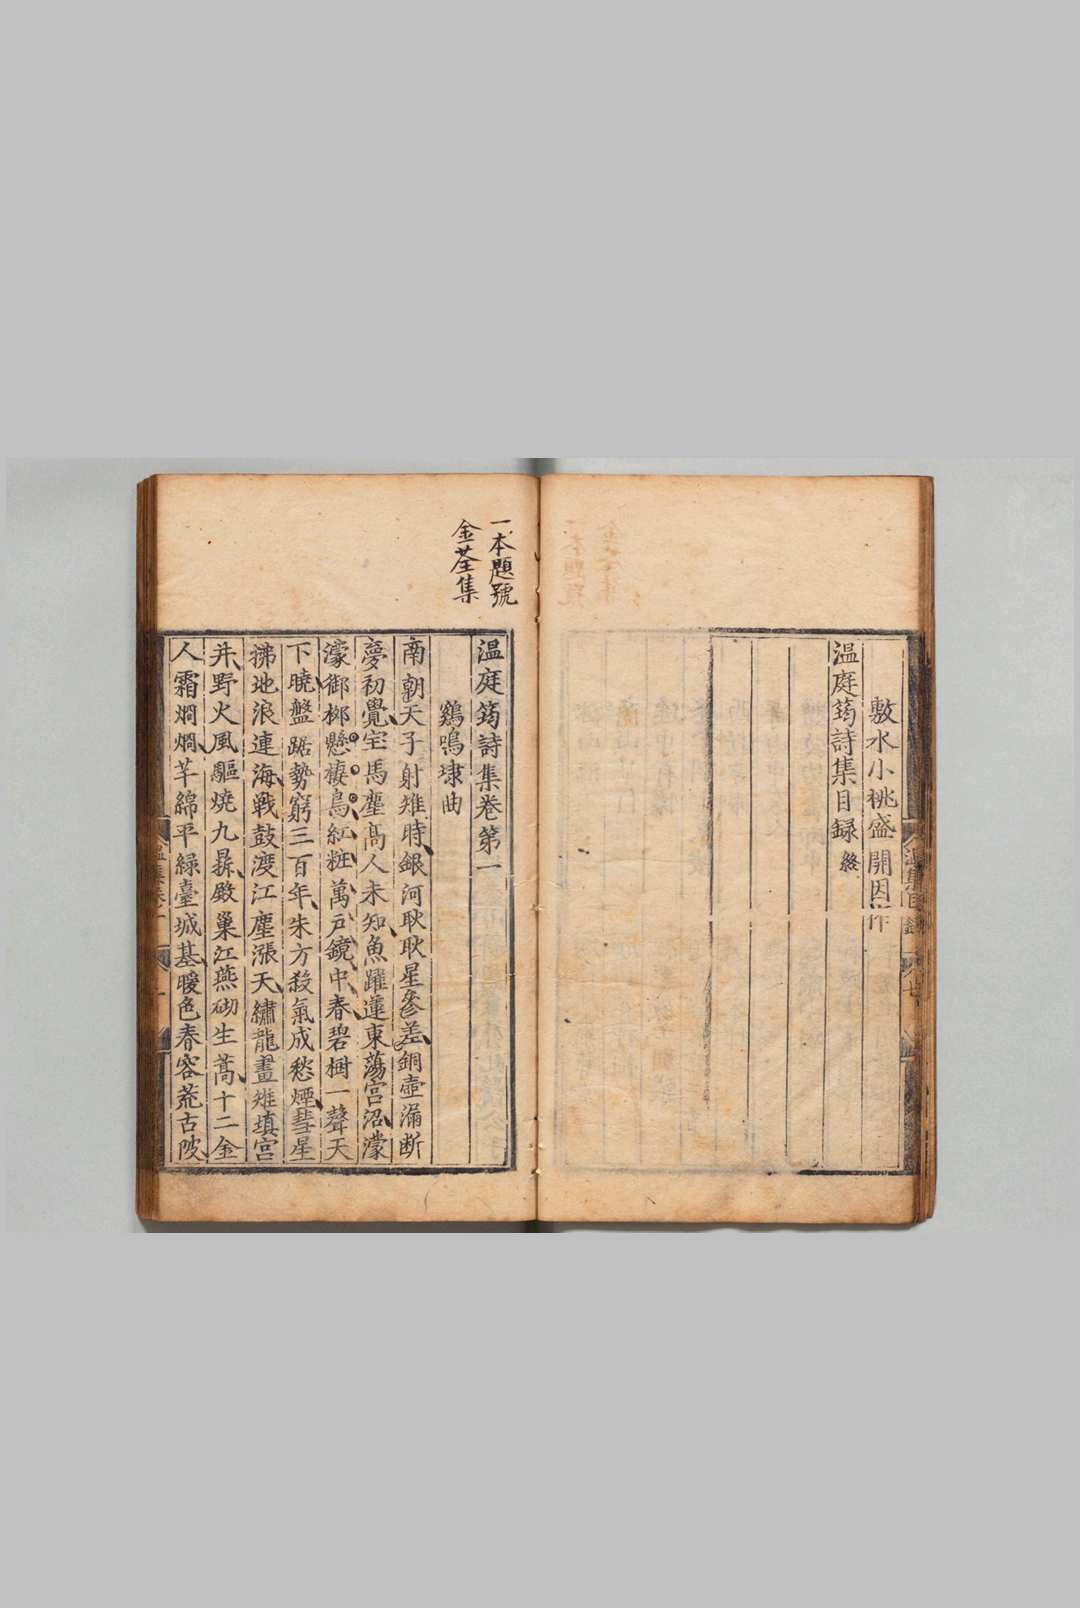 敷水小桃盛開因作
温庭筠詩集目録 終
一本題號
金荃集
温庭筠詩集卷第一
鷄鳴埭曲
南朝天子射雉時銀河耿耿星參差銅壺漏断
夢初覺宝馬塵髙人未知魚躍蓮東蕩宮沼濛
濛御栁懸棲鳥紅粧萬戸鏡中春碧樹一聲天
下曉盤踞勢窮三百年朱方殺氣成愁煙彗星
拂地浪連海戦鼓渡江塵漲天繡龍畫雉填宮
井野火風驅燒九鼎殿巢江燕砌生蒿十二金
人霜烱烱芊綿平緑臺城基暖色春容荒古陂